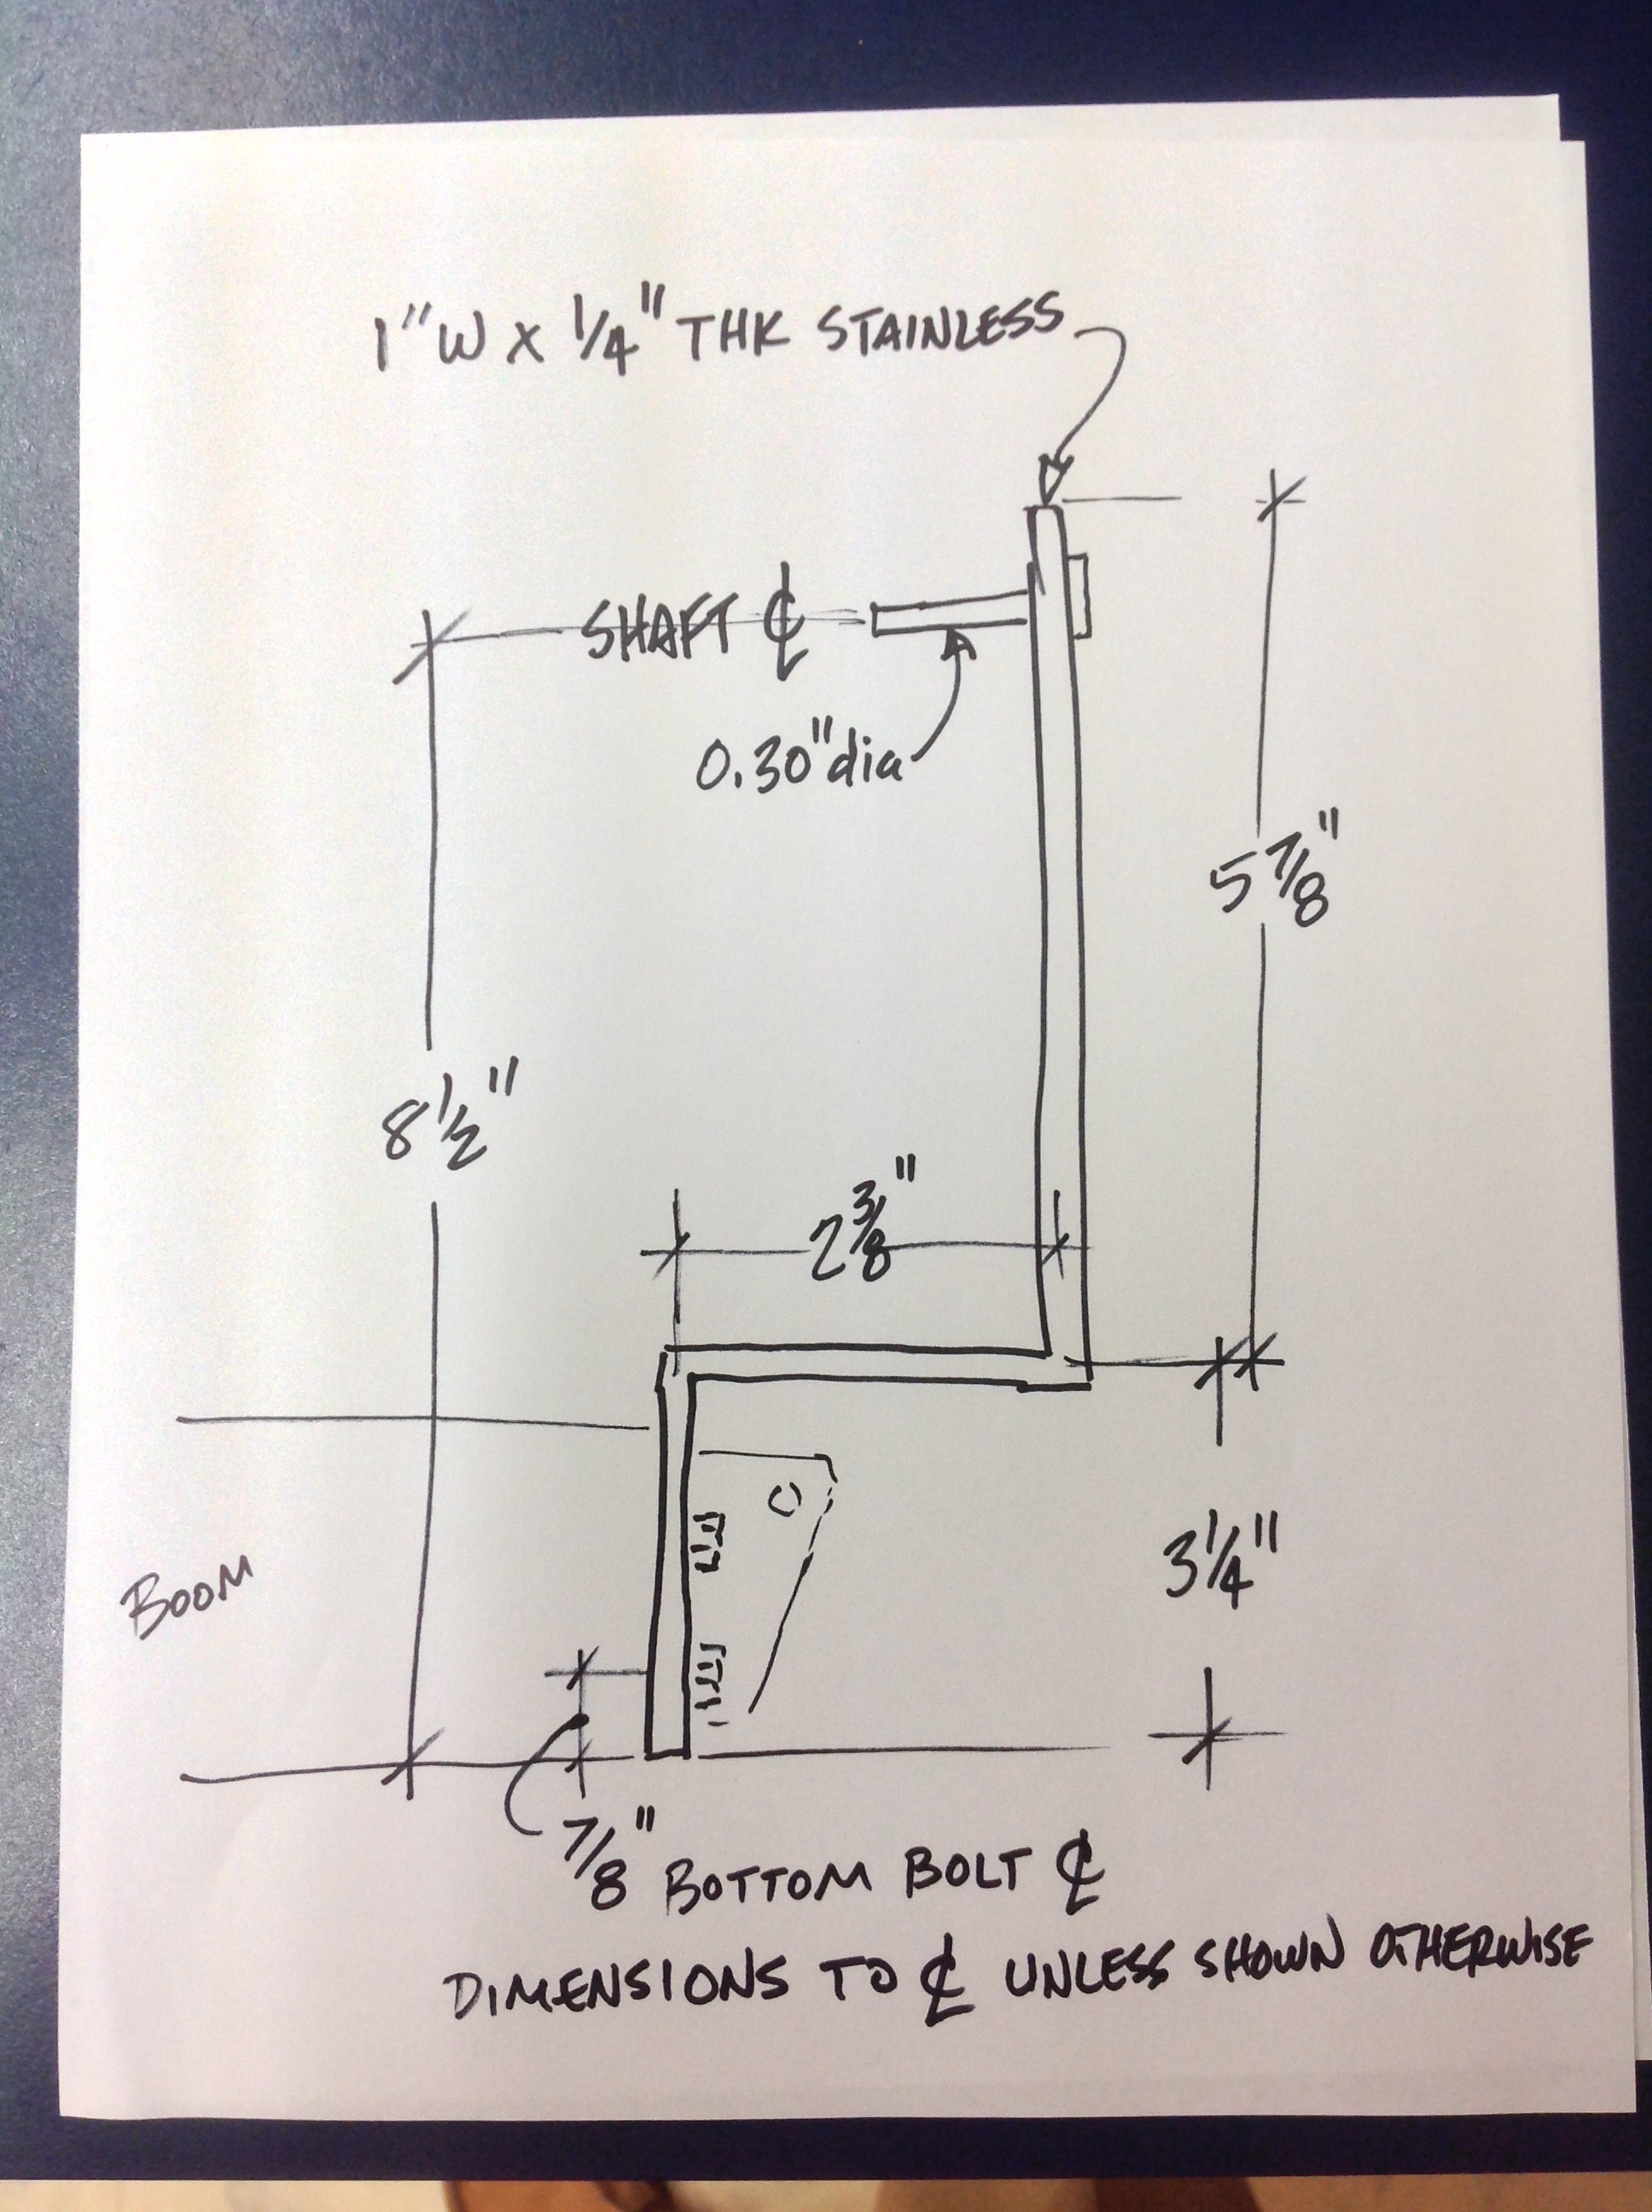 1" W X 1/4" THK STAINLESS
SHAFT ℄
0.30" dia
5 7/8"
8 1/2"
2 3/8"
3 1/4"
BOOM
7/8" BOTTOM BOLT ℄
DIMENSIONS TO ℄ UNLESS SHOWN OTHERWISE